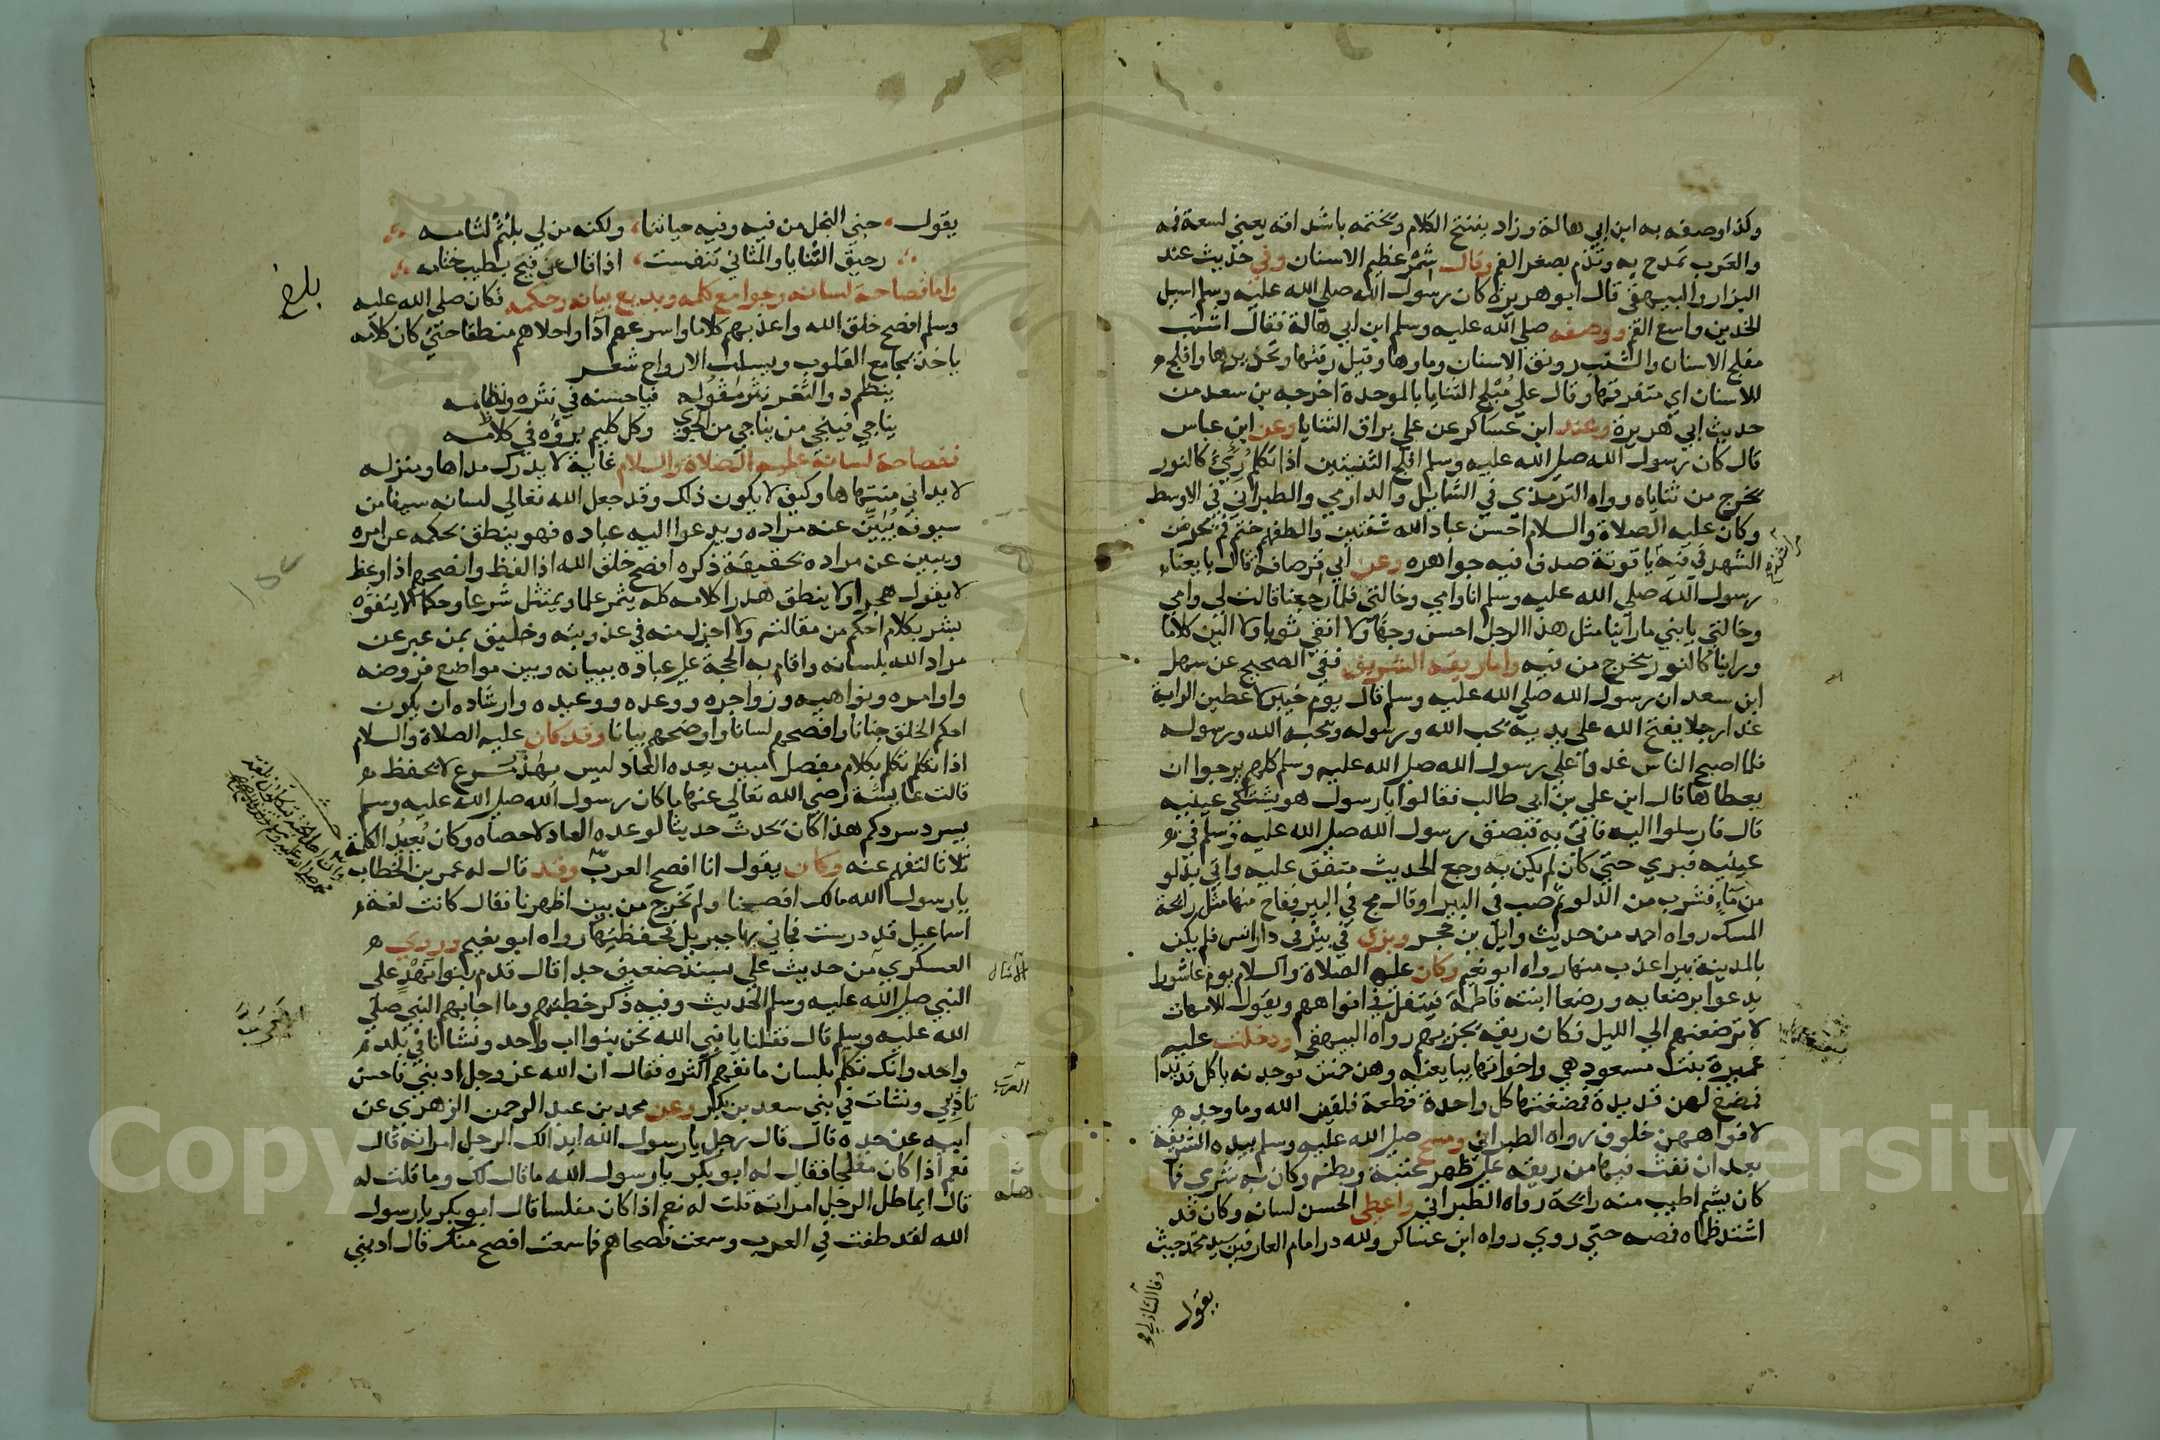 وكذا وصفه به ابن ابي هالة وزاد يفتتح الكلام ويختمه باشداقه يعني لسعة فمه
والعرب تمدح به وتذم بصغر الفم وقال شمر عظيم الاسنان وفي حديث عند
البزار والبيهقي قال ابو هريرة كان رسول الله صلى الله عليه وسلم اسيل
الخدين واسع الفم ووصفه صلى الله عليه وسلم ابن ابي هالة فقال اشنب
مفلج الاسنان والشنب رونق الاسنان وماوها وقيل رقتها وتحزيزها وافلج
للاسنان اي متفرقتها وقال علي مبلج الثنايا بالموحدة اخرجه بن سعد من
حديث ابي هريرة وعند ابن عساكر عن علي براق الثنايا وعن ابن عباس
قال كان رسول الله صلى الله عليه وسلم افلج الثنيتين اذا تكلم رئي كالنور
يخرج من ثناياه رواه الترمذي في الشمايل والدارمي والطبراني في الاوسط
وكان عليه الصلاة والسلام احسن عباد الله شفتين والطفهم ختم فم بحر من
الشهد في فيه يا قوتة صدف فيه جواهره وعن ابي قرصافة قال بايعنا
رسول الله صلى الله عليه وسلم انا وامي وخالتي فلما رجعنا قالت لي وامي
وخالتي يا بني ما راينا مثل هذا الرجل احسن وجها ولا انقى ثوبا ولا الين كلاما
وراينا كالنور يخرج من فيه واما ريقه الشريف ففي الصحيح عن سهل
ابن سعد ان رسول الله صلى الله عليه وسلم قال يوم خيبر لاعطين الراية
غدا رجلا يفتح الله على يديه يحب الله ورسوله ويحبه الله ورسوله
فلما اصبح الناس غدوا على رسول الله صلى الله عليه وسلم كلهم يرجوا ان
يعطاها قال اين علي بن ابي طالب فقالوا يا رسول هو يشتكي عينيه
قال فارسلوا اليه فاتي به فبصق رسول الله صلى الله عليه وسلم في
عينيه فبري حتى كان لم يكن به وجع الحديث متفق عليه واتي بدلو
من ماء فشرب من الدلو ثم صب في البير او قال مج في البير ففاح منها مثل رائحة
المسك رواه احمد من حديث وايل بن حجر وبزق في بير في دار انس فلم يكن
بالمدينة بير اعذب منها رواه ابو نعيم وكان عليه الصلاة والسلام يوم عاشورا
يدعوا برضعايه ورضعا ابنته فاطمة فيتفل في افواههم ويقول للامهات
لا ترضعنهم الى الليل فكان ريقه يجزيهم رواه البيهقي ودخلت عليه
عميرة بنت مسعود هي واخواتها يبايعنه وهن خمس فوجدنه ياكل قديدا
فمضغ لهن قديدة فمضغنها كل واحدة قطعة فلقين الله وما وجد
لافواههن خلوف رواه الطبراني ومسح صلى الله عليه وسلم بيده الشريفة
بعد ان نفث فيها من ريقه على ظهر عتبة وبطنه وكان به شرى فما
كان يشم اطيب منه رائحة رواه الطبراني واعطى الحسن لسانه وكان قد
اشتد ظماه فمصه حتى روي رواه ابن عساكر ولله در امام العارفين سيد محمد حيث
وفا الشاذلي
يقول
يقول جنى النحل من فيه وفيه حياتنا ولكنه من لي بلثم لثامه
رحيق الثنايا والمثاني تنفست اذا قال عن فيح بطيب ختامه
واما فصاحة لسانه وجوامع كلمه وبديع بيانه وحكمه فكان صلى الله عليه
بلغ
وسلم افصح خلق الله واعذبهم كلاما واسرعهم اداء واحلاهم منطقا حتى كان كلامه
ياخذ بمجامع القلوب ويسلب الارواح شعر
ينظم در الثغر نثر مقوله فيا حسنه في نثره ونظامه
يناجي فينجي من يناجي من الجوى وكل كليم برؤه في كلامه
ففصاحة لسانه عليه الصلاة والسلام غاية لا يدرك مداها ومنزله
لا يداني منتهاها وكيف لا يكون ذلك وقد جعل الله تعالى لسانه سيفا من
سيوفه يبين عنه مراده ويدعوا اليه عباده فهو ينطق بحكمه عن امره
ويبين عن مراده بحقيقة ذكره افصح خلق الله اذا لفظ وانصحهم اذا وعظ
لا يقول هجرا ولا ينطق هذرا كلامه كله يثمر علما ويمتثل شرعا وحكما لا يتفوه
بشر بكلام احكم من مقالته ولا اجزل منه في عذوبته وخليق بمن عبر عن
مراد الله بلسانه واقام به الحجة على عباده ببيانه وبين مواضع فروضه
واوامره ونواهيه وزواجره ووعده ووعيده وارشاده ان يكون
احكم الخلق جنانا وافصحهم لسانا واوضحهم بيانا وقد كان عليه الصلاة والسلام
اذا تكلم تكلم بكلام مفصل مبين يعده العاد ليس بهذ مسرع لا يحفظ
قالت عايشة رضي الله تعالى عنها ما كان رسول الله صلى الله عليه وسلم
يسرد سردكم هذا كان يحدث حديثا لو عده العاد لاحصاه وكان يعيد الكلمة
ثلاثا لتفهم عنه وكان يقول انا افصح العرب وقد قال له عمر بن الخطاب
يا رسول الله مالك افصحنا ولم تخرج من بين اظهرنا فقال كانت لغة
اسماعيل قد درست فجاني بها جبريل فحفظنيها رواه ابو نعيم وروي
العسكري من حديث علي بسند ضعيف جدا قال قدم بنوا نهد على
الامثال
النبي صلى الله عليه وسلم الحديث وفيه ذكر خطبتهم وما اجابهم النبي صلى
الله عليه وسلم قال فقلنا يا نبي الله نحن بنوا اب واحد ونشانا في بلد
واحد وانك تكلم بلسان ما نفهم اكثره فقال ان الله عز وجل ادبني فاحسن
العرب
تاديبي ونشات في بني سعد بن بكر وعن محمد بن عبد الرحمن الزهري عن
ابيه عن جده قال قال رجل يا رسول الله ايدالك الرجل امراته قال
نعم اذا كان مفلجا فقال له ابو بكر يا رسول الله ما قال لك وما قلت له
قال ايماطل الرجل امراته قلت له نعم اذا كان مفلسا قال ابو بكر يا رسول
الله لقد طفت في العرب وسمعت فصحاهم فما سمعت افصح منك قال ادبني